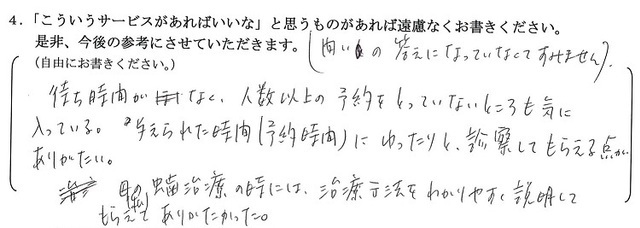 4．「こういうサービスがあればいいな」と思うものがあれば遠慮なくお書きください。
是非、今後の参考にさせていただきます。(問いの答えになっていなくてすみません)．
（自由にお書きください。）
待ち時間がなく、人数以上の予約をとっていないところも気に
入っている。与えられた時間(予約時間)にゆったりと、診察してもらえる点が
ありがたい。
母の 虫歯治療の時には、治療方法をわかりやすく説明して
もらえて ありがたかった。